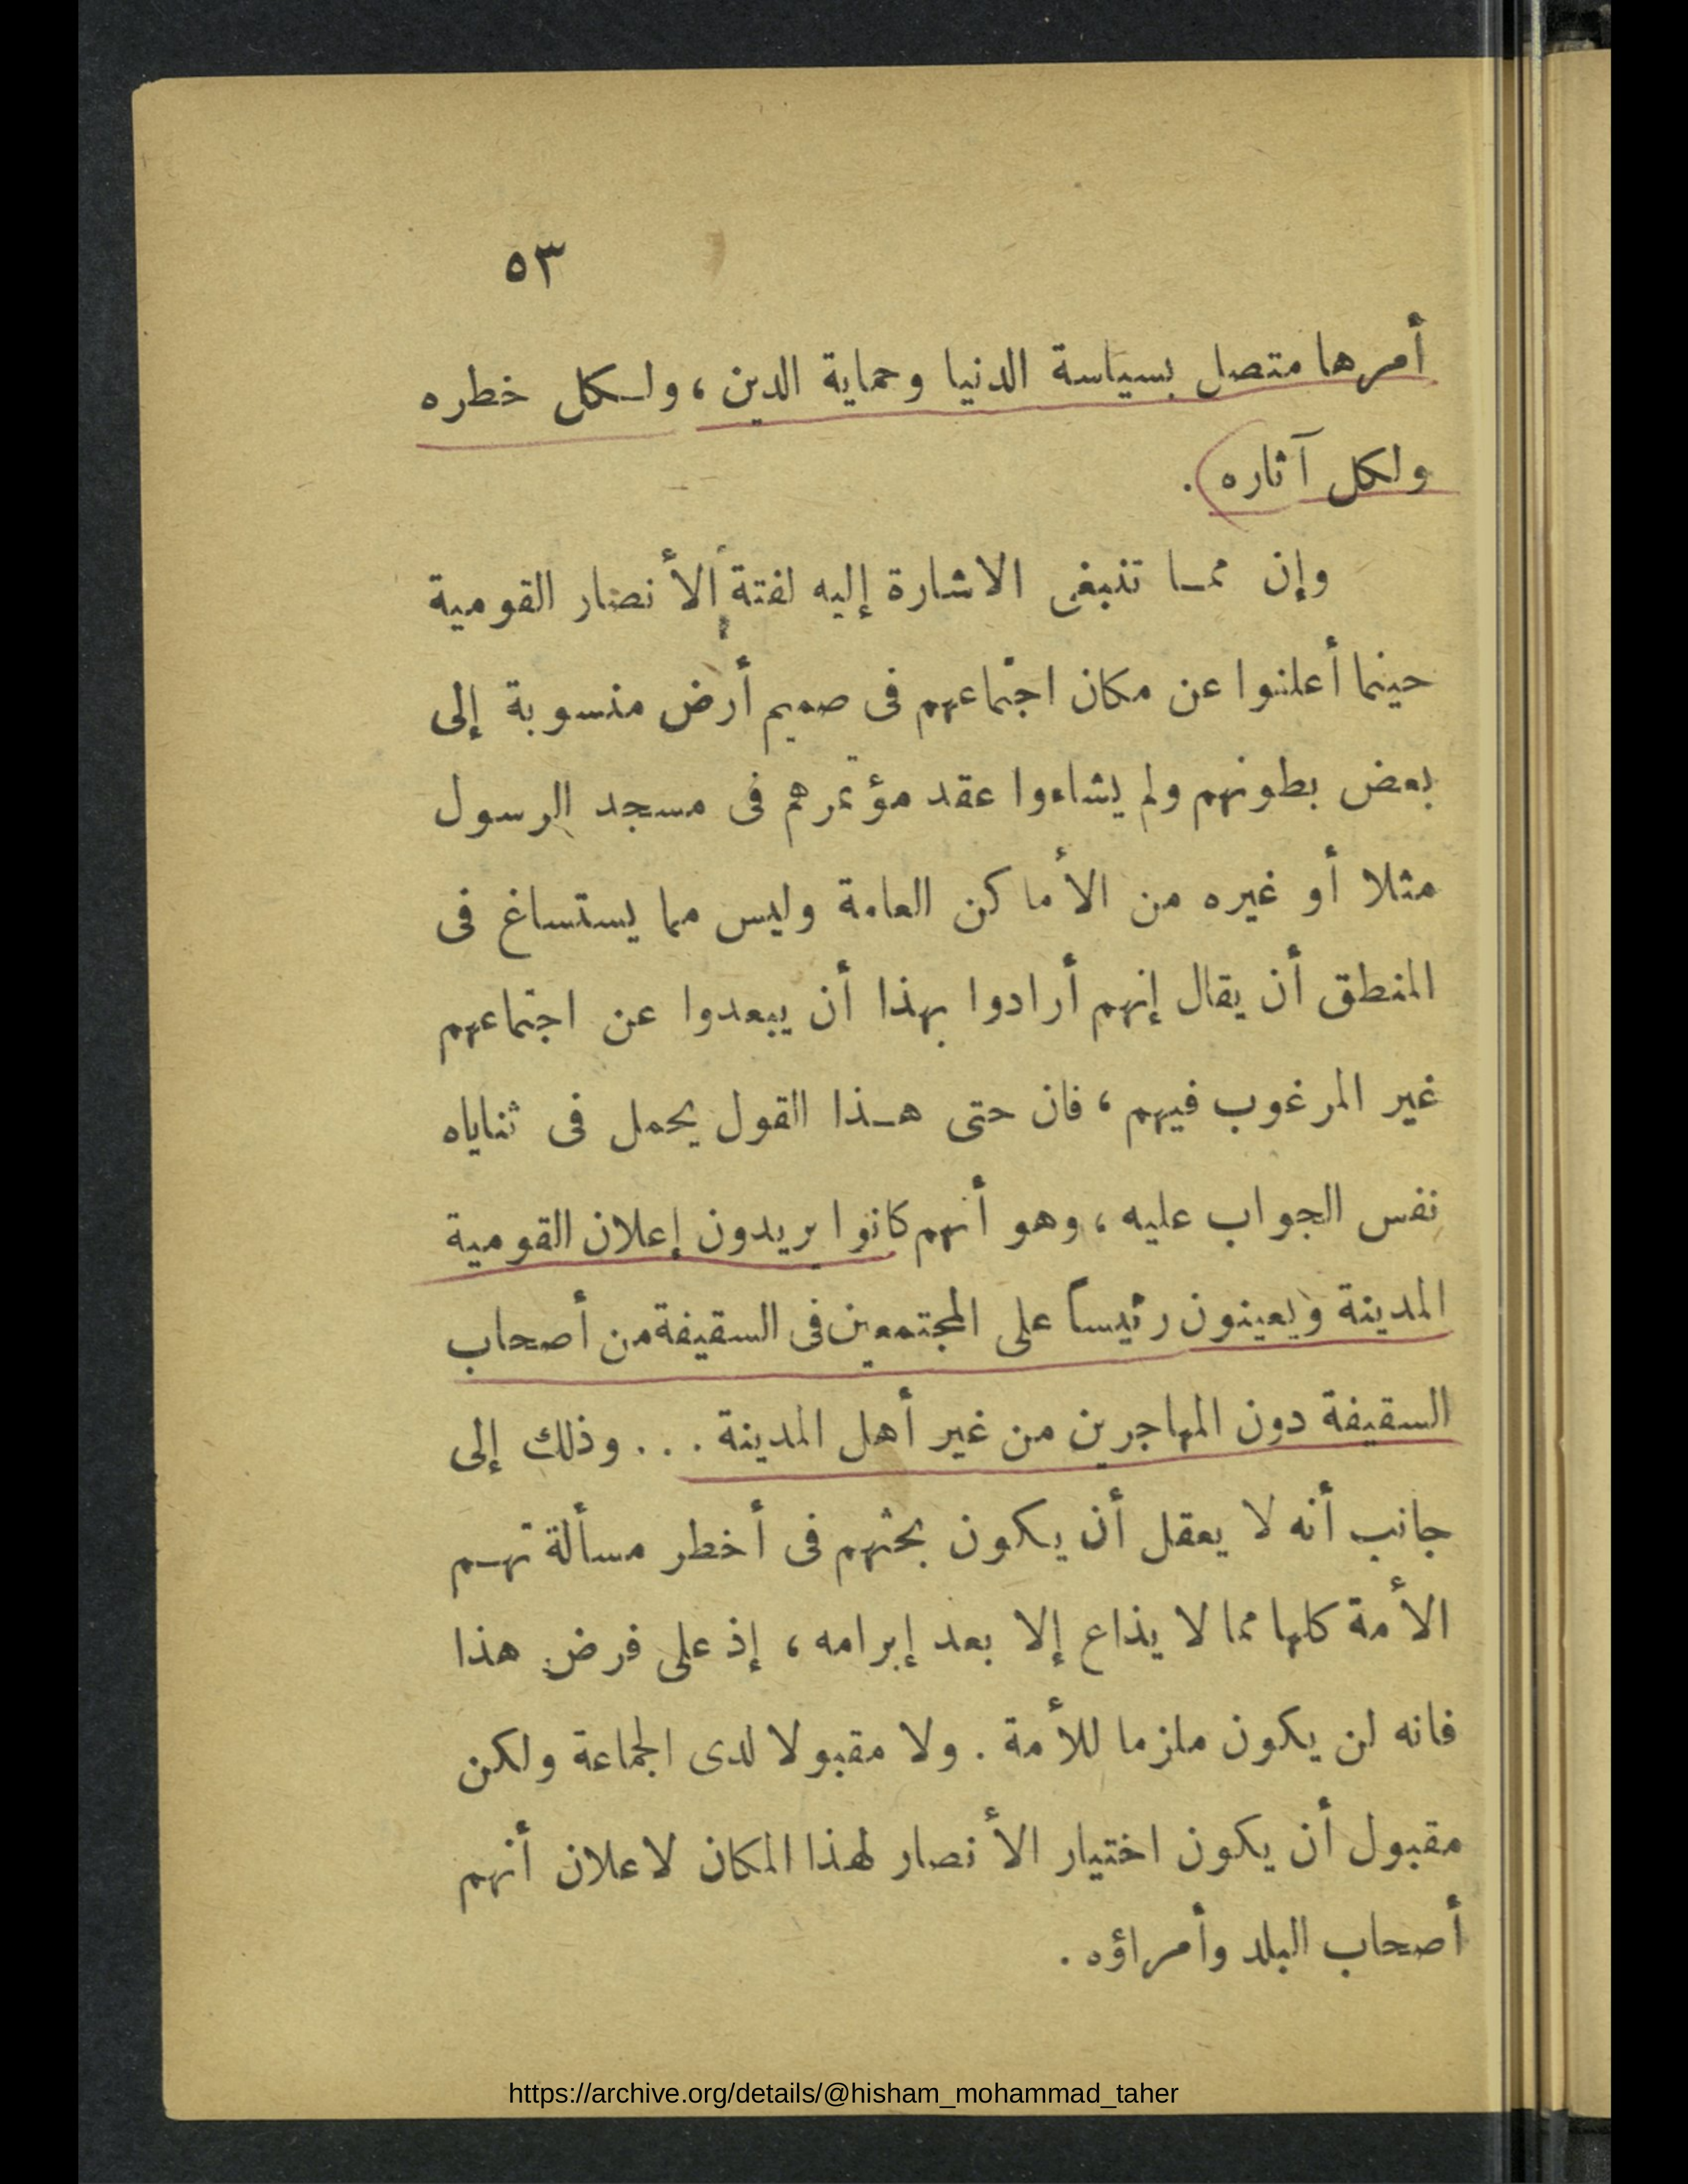 ٥٣
أمرها متصل بسياسة الدنيا وحماية الدين ، ولكل خطره
ولكل آثاره .
وإن مما تنبغى الاشارة إليه لفتة الأنصار القومية
حينما أعلنوا عن مكان اجتماعهم فى صميم أرض منسوبة إلى
بعض بطونهم ولم يشاءوا عقد مؤتمرهم فى مسجد الرسول
مثلا أو غيره من الأماكن العامة وليس مما يستساغ فى
المنطق أن يقال إنهم أرادوا بهذا أن يبعدوا عن اجتماعهم
غير المرغوب فيهم ، فان حتى هذا القول يحمل فى ثناياه
نفس الجواب عليه ، وهو أنهم كانوا يريدون إعلان القومية
المدينة ويعينون رئيساً على المجتمعين فى السقيفة من أصحاب
السقيفة دون المهاجرين من غير أهل المدينة . . . وذلك إلى
جانب أنه لا يعقل أن يكون بحثهم فى أخطر مسألة تهم
الأمة كلها مما لا يذاع إلا بعد إبرامه ، إذ على فرض هذا
فانه لن يكون ملزما للأمة . ولا مقبولا لدى الجماعة ولكن
مقبول أن يكون اختيار الأنصار لهذا المكان لاعلان أنهم
أصحاب البلد وأمراؤه .
https://archive.org/details/@hisham_mohammad_taher